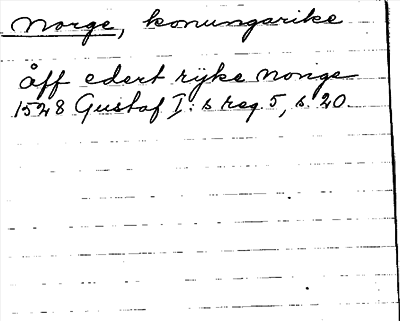 Norge, konungarike
åff edert rijke Norige
1528 Gustaf I:s reg 5, s. 20.